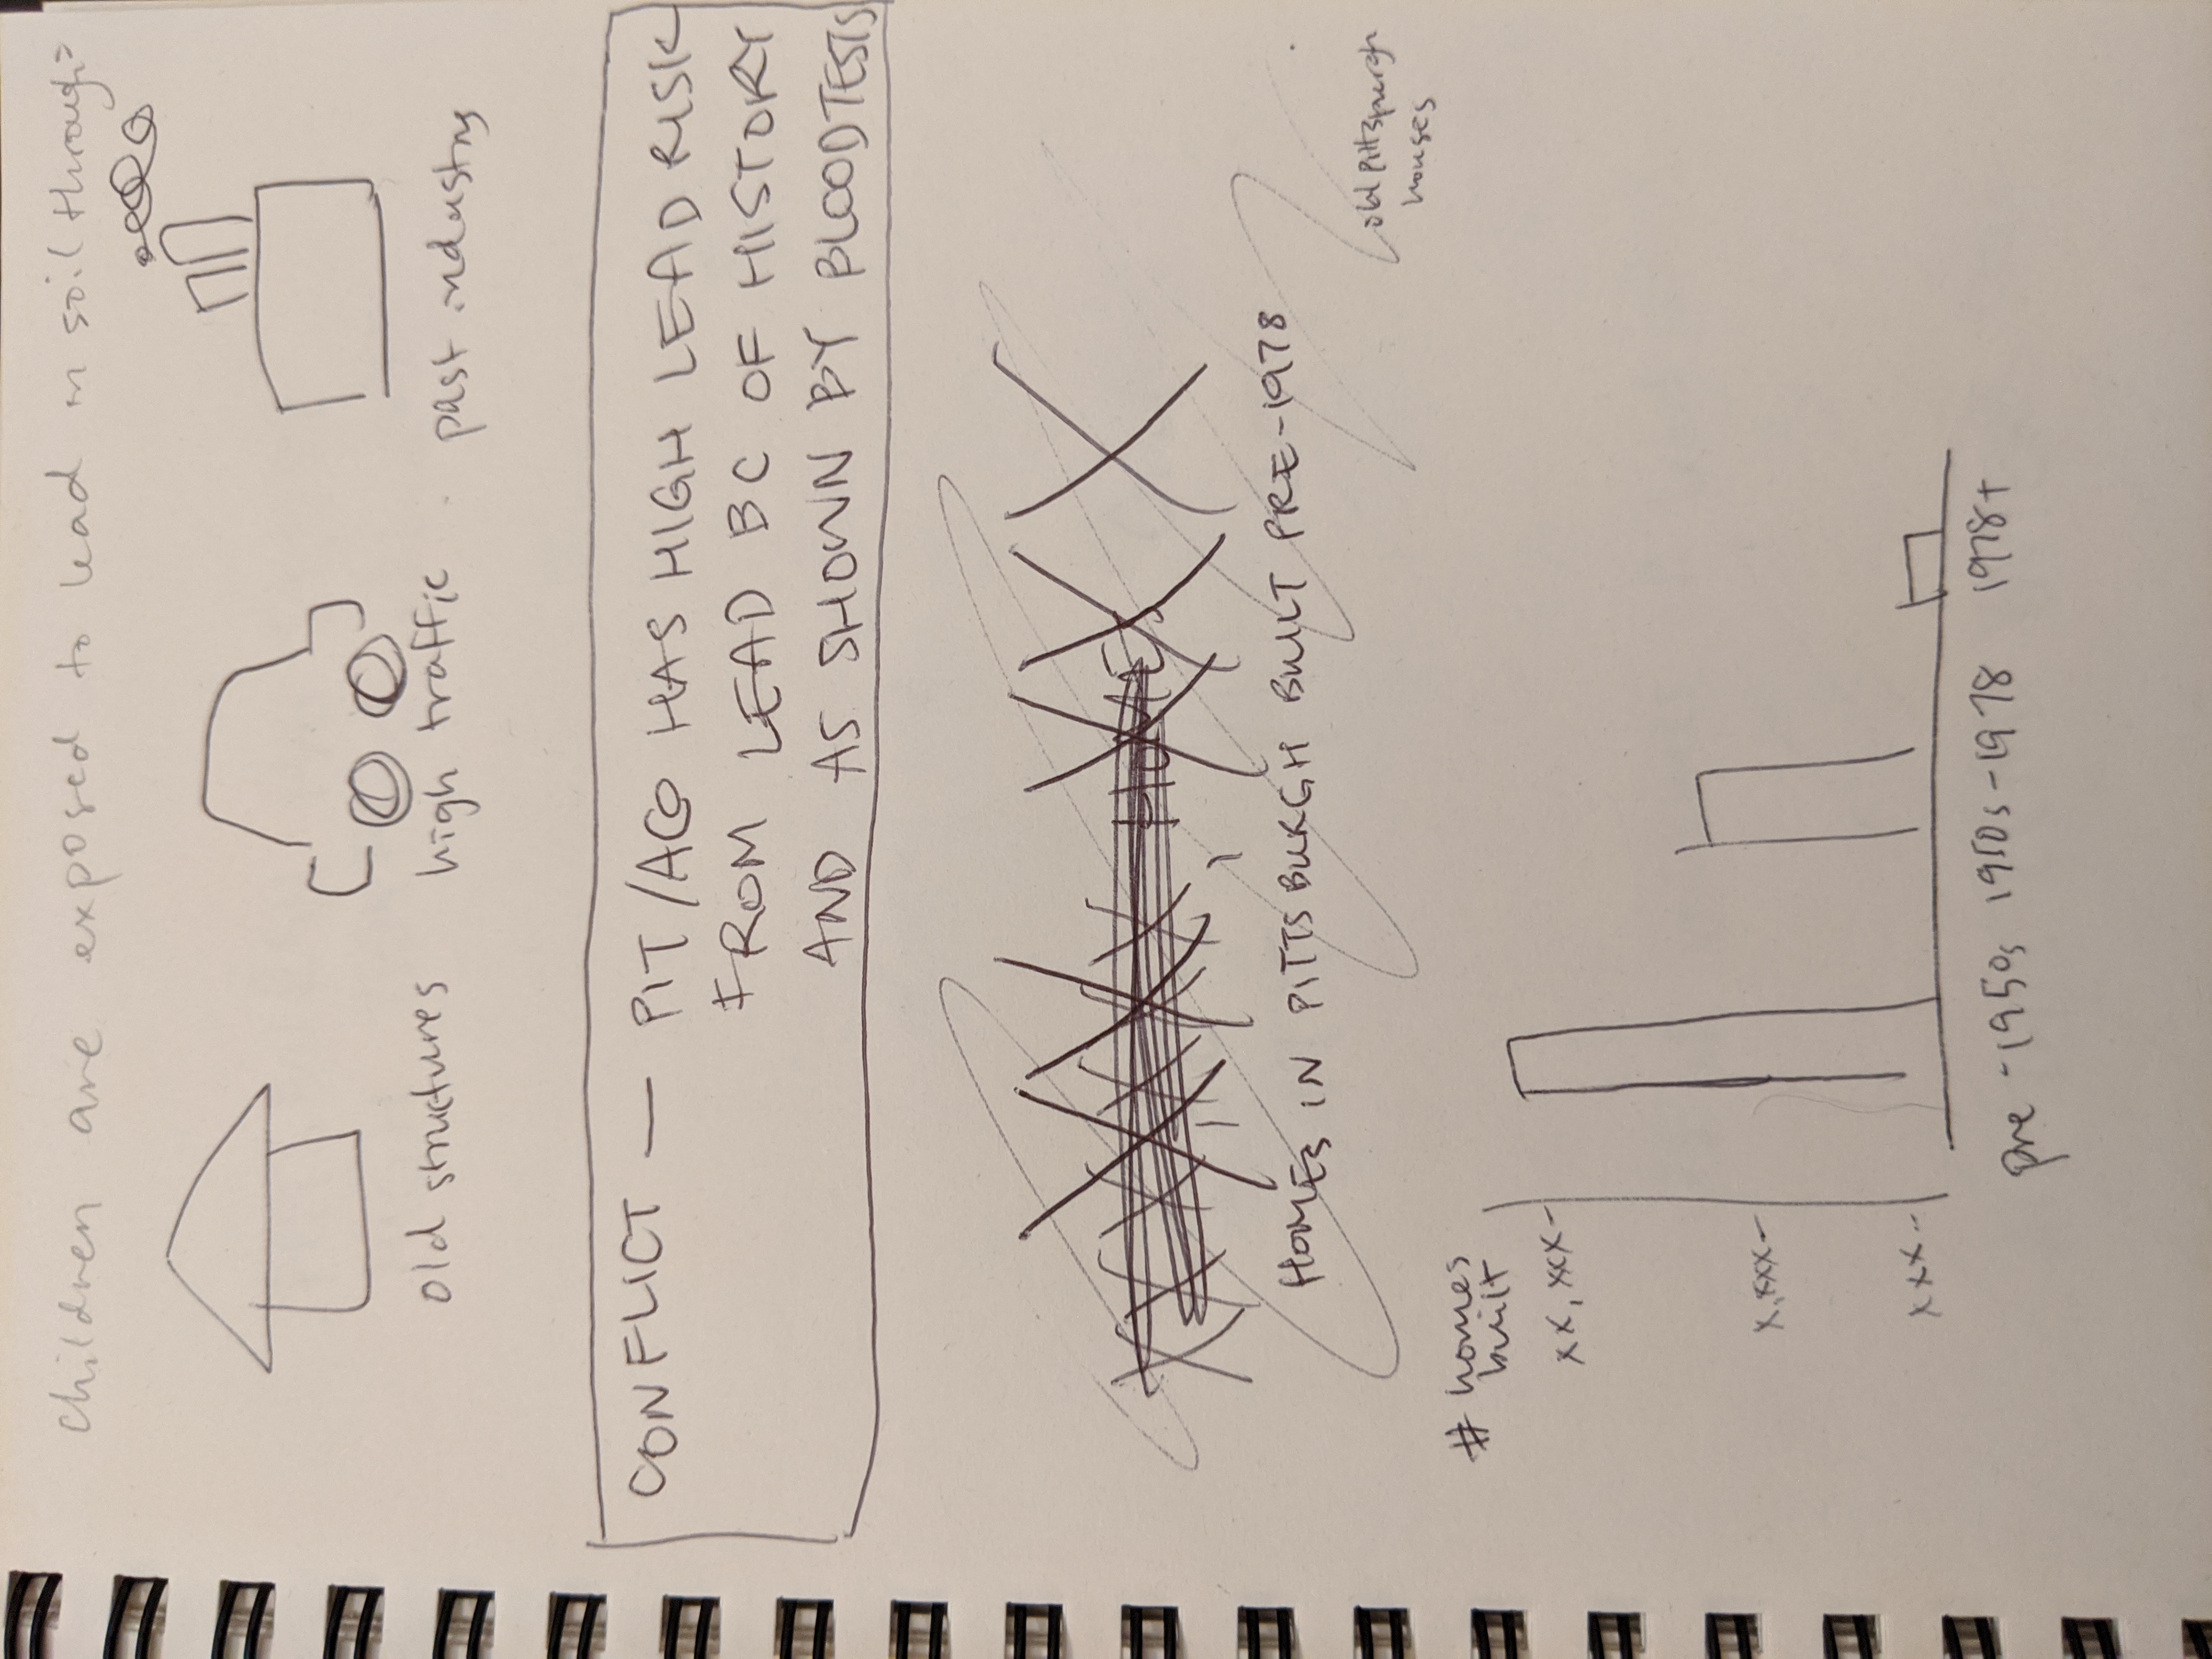 children are exposed to lead in soil through:
old structures
high traffic
past industry
CONFLICT — PIT/ACO HAS HIGH LEAD RISK
FROM LEAD BC OF HISTORY
AND AS SHOWN BY BLOODTESTS
XX,XXX
XX,XXX HOMES
HOMES IN PITTSBURGH BUILT PRE-1978
old Pittsburgh
houses
# homes
built
xx,xxx-
x,xxx-
xxx-
pre-1950s 1950s-1978 1978+